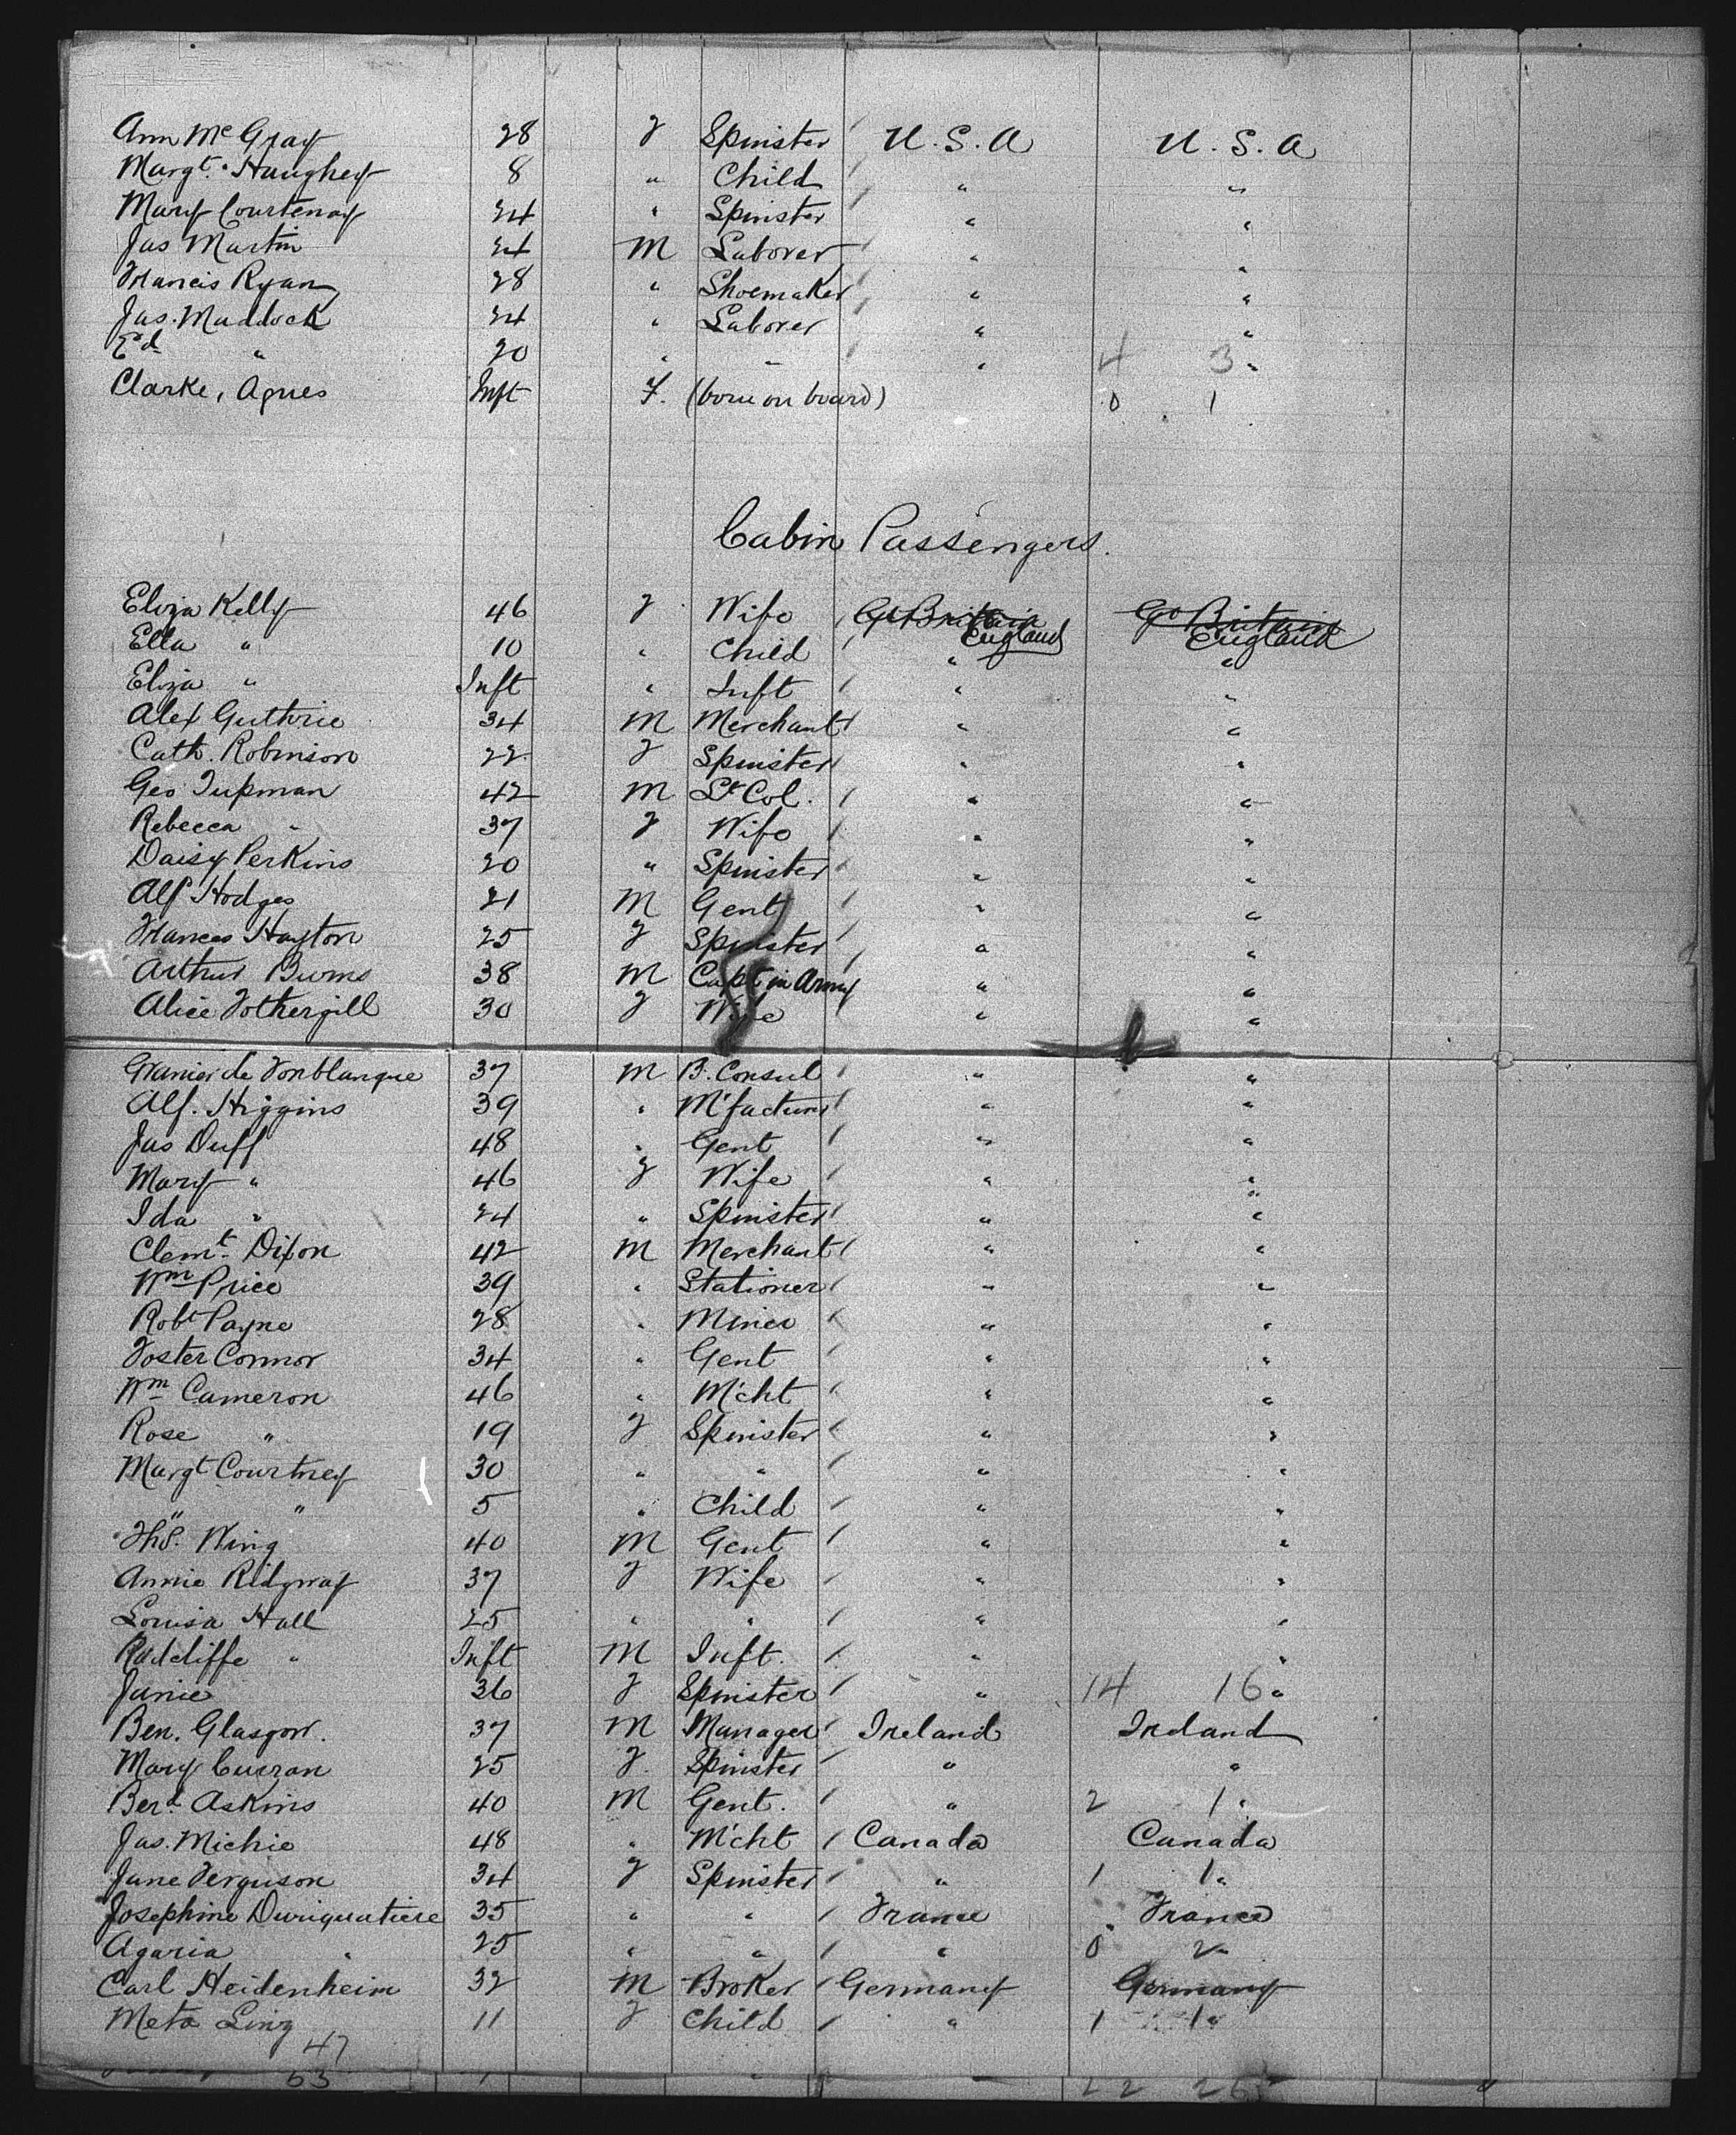 Ann McGray 28 F Spinster U.S.A U.S.A
Margt. Haughey 8 " Child " "
Mary Courtenay 24 " Spinster " "
Jas Martin 24 M Laborer " "
Francis Ryan 28 " Shoemaker " "
Jas. Maddock 24 " Laborer " "
Ed " 20 " " " 4 3 "
Clarke, Agnes Inft F. (born on board) 0 1
Cabin Passengers.
Eliza Kelly 46 F Wife Gt Britain England Gt Britain England
Ella " 10 " Child " "
Eliza " Inft " Inft " "
Alex Guthrie 34 M Merchant " "
Cath. Robinson 22 F Spinster " "
Geo Tupman 42 M Lt Col. " "
Rebecca " 37 F Wife " "
Daisy Perkins 20 " Spinster " "
Alf Hodges 21 M Gent " "
Frances Hayton 25 F Spinster " "
Arthur Burns 38 M Capt in Army " "
Alice Fothergill 30 F Wife " "
Granier de Fonblanque 37 M B. Consul " "
Alf. Higgins 39 " M'facturer " "
Jas Duff 48 " Gent " "
Mary " 46 F Wife " "
Ida " 24 " Spinster " "
Clemt. Dixon 42 M Merchant " "
Wm Price 39 " Stationer " "
Robt Payne 28 " Miner " "
Foster Connor 34 " Gent " "
Wm Cameron 46 " M'cht " "
Rose " 19 F Spinster " "
Margt Courtney 30 " " " "
" " 5 " Child " "
Ths. Wing 40 M Gent " "
Annie Ridgway 37 F Wife " "
Louisa Hall 25 " " " "
Radcliffe " Inft M Inft. " "
Janie 36 F Spinster " 14 16 "
Ben. Glasgow. 37 M Manager Ireland Ireland
Mary Curran 25 F. Spinster " "
Berd. Askins 40 M Gent. " 2 1 "
Jas. Michie 48 " M'cht Canada Canada
Jane Ferguson 34 F Spinster " 1 1 "
Josephine 35 " " France France
Agaria " 25 " " " 0 2 "
Carl Heidenheim 32 M Broker Germany Germany
Meta Linz 11 F Child " 1 1 "
47
63 22 26